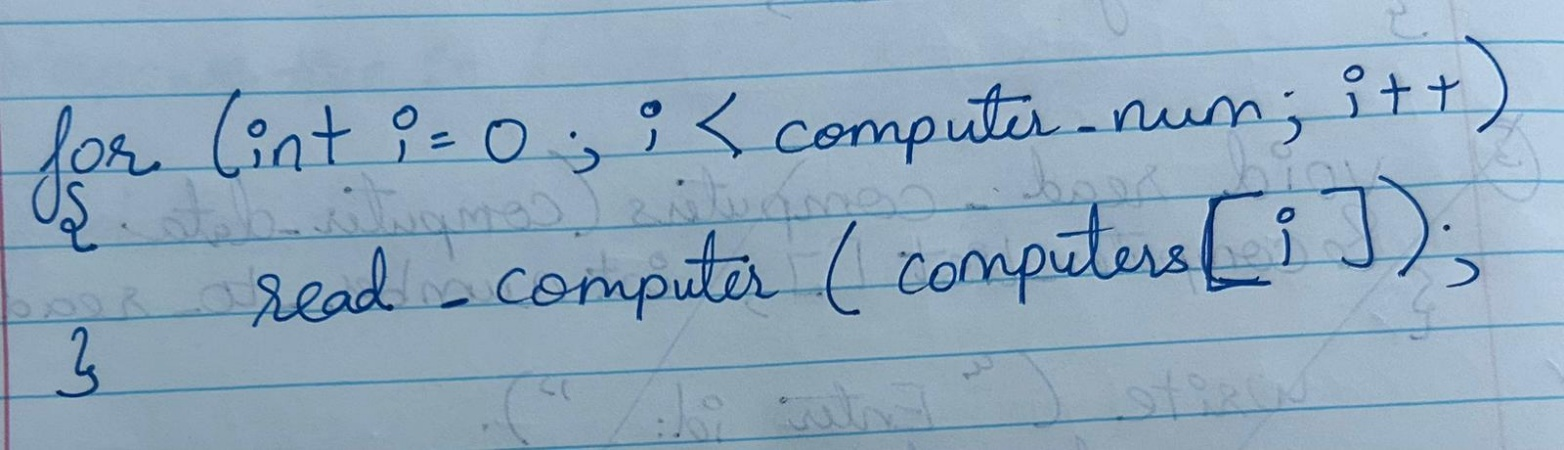 for (int i=0; i < computer_num; i++)
{
read_computer (computers[i]);
}